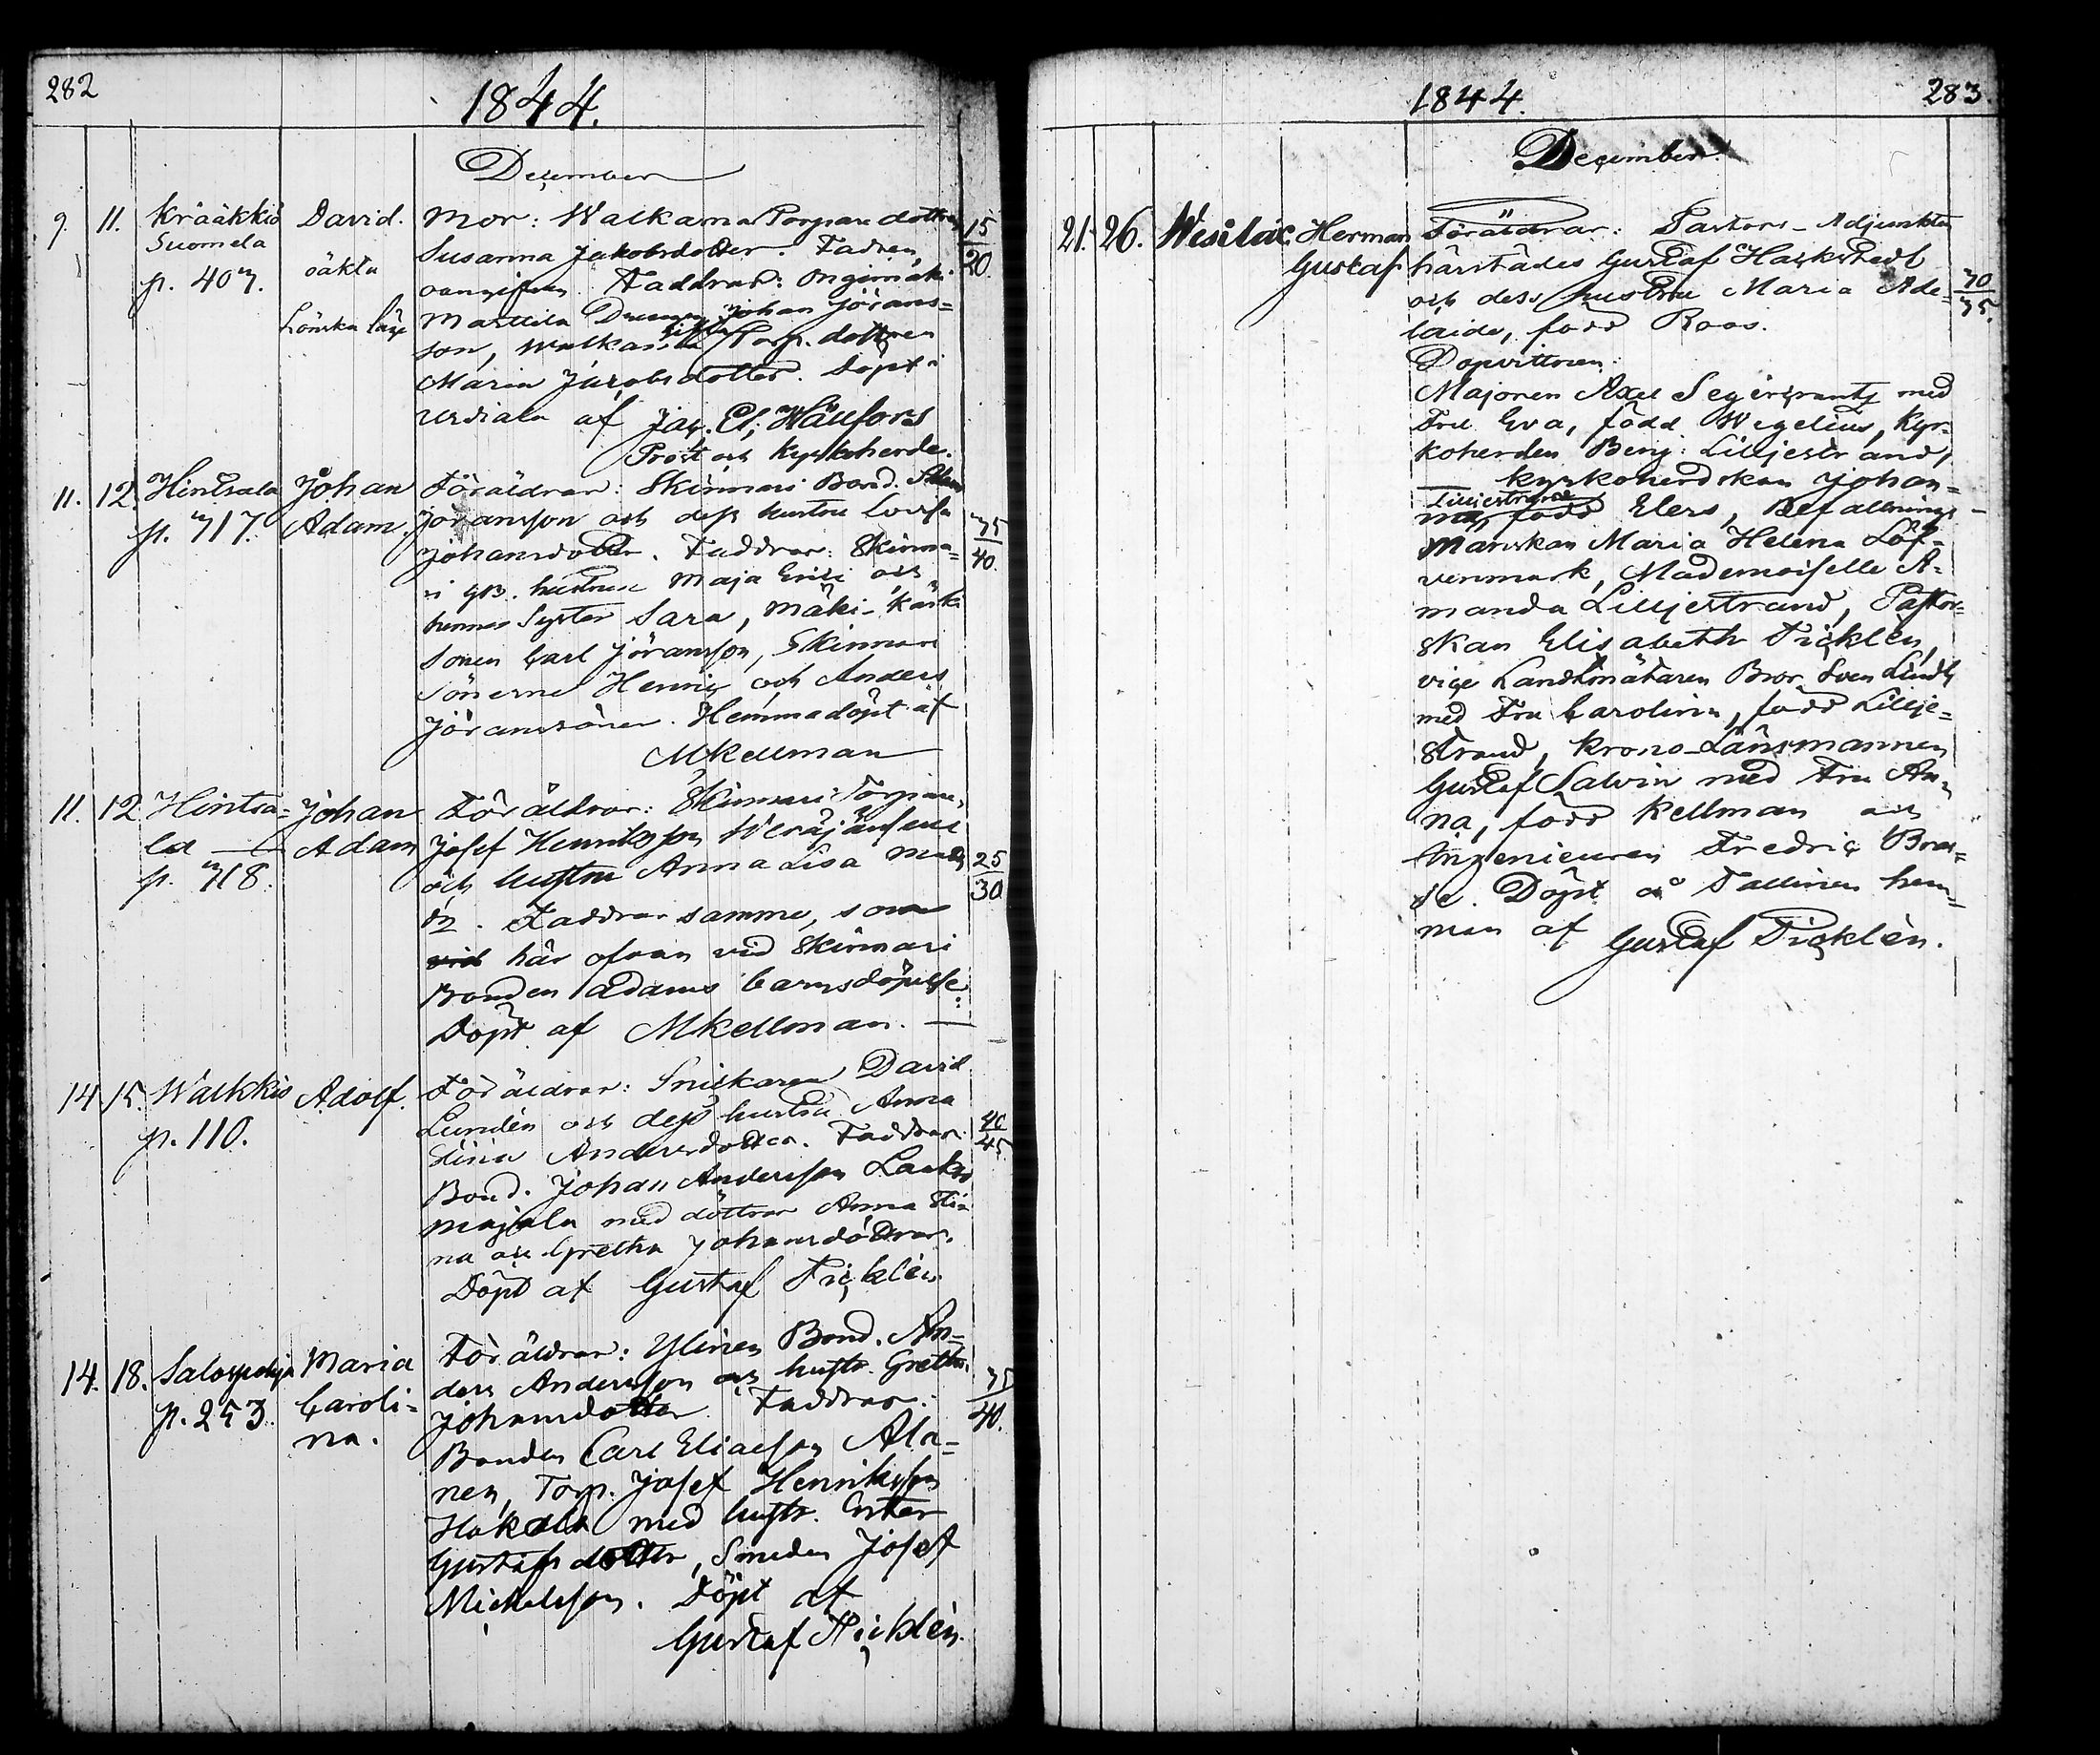 282
1844.
December
9. 11. Krääkkiö David. Mor: Walkama Torpare dottren 15/20
Suomela öäkta Susanna Jakobsdotter. Fadren
p. 407. oangifven. Faddrar: Ongenmäki
Lönska läge Marttila Drengen Johan Jörans=
son, Walkama Torp. dottren
Maria Jacobsdotter. Döpt i
Urdiala af Jac. El; Wallfors
Prost och Kyrkoherde.
11. 12. Hintsala Johan Föräldrar: Skinnari Bond. Adam
p. 717. Adam. Jöransson och dess hustru Lovisa 35/40.
Johansdotter. Faddrar: Skinna=
ri gB. hustru Maja Greta och
hennes Syster Sara, Mäki-Kärki
Sonen Carl Jöransson, Skinnari
Sönerne Henric och Anders
Jöranssöner. Hemmadöpt af
MKellman
11. 12 Hintsa= Johan Föräldrar: Skinnari Torpare,
la Adam Josef Henriksson Weräjänsuu
p. 718. och hustru Anna Lisa Matts 25/30
dr. Faddrar samme, som
vid här ofvan vid Skinnari
Bonden Adams barnsdöpelse.
Döpt af MKellman.
14. 15. Walkkis Adolf. Föräldrar: Snickaren David
p. 110. Lundén och dess hustru Anna 40/45.
Stina Andersdotter. Faddrar:
Bond. Johan Andersson Lauk
majala med döttrar Anna Sti=
na och Gretha Johansdöttrar.
Döpt af Gustaf Ticklén
14. 18. Salospohja Maria Föräldrar: Ylinen Bond. An=
p. 253. Caroli= ders Andersson och hustr. Gretha 35/40.
na. Johansdotter Faddrar:
Bonden Carl Eliaesson Ala=
nen, Torp. Josef Henriksson
Hakala med hustr. Ester
Gustafsdotter, Smeden Josef
Mickelsson. Döpt af
Gustaf Ticklén.
1844.
283.
December.
21. 26. Wesilax Herman Föräldrar: Pastors-Adjunkten
Gustaf härstädes Gustaf Hackstedt 30/35.
och dess hustru Maria Ade=
laide, född Roos.
Dopvittnen:
Majoren Axel Segercrantz med
Fru Eva, född Wegelius, Kyr=
koherden Benj. Lilljestrand,
Kyrkoherdskan Johan=
na Lilljestrand född Elers, Befallnings-
manskan Maria Helena Löf=
venmark, Mademoiselle A=
manda Lilljestrand, Pastor=
skan Elisabeth Ticklén,
vice Landtmätaren Bror Sven Lindh
med Fru Carolina, född Lillje=
strand, Krono-Länsmannen
Gustaf Salvin med Fru An=
na, född Kellman och
Ingenieuren Fredric Bras=
se. Döpt å Tallinen hem=
man af Gustaf Ticklén.